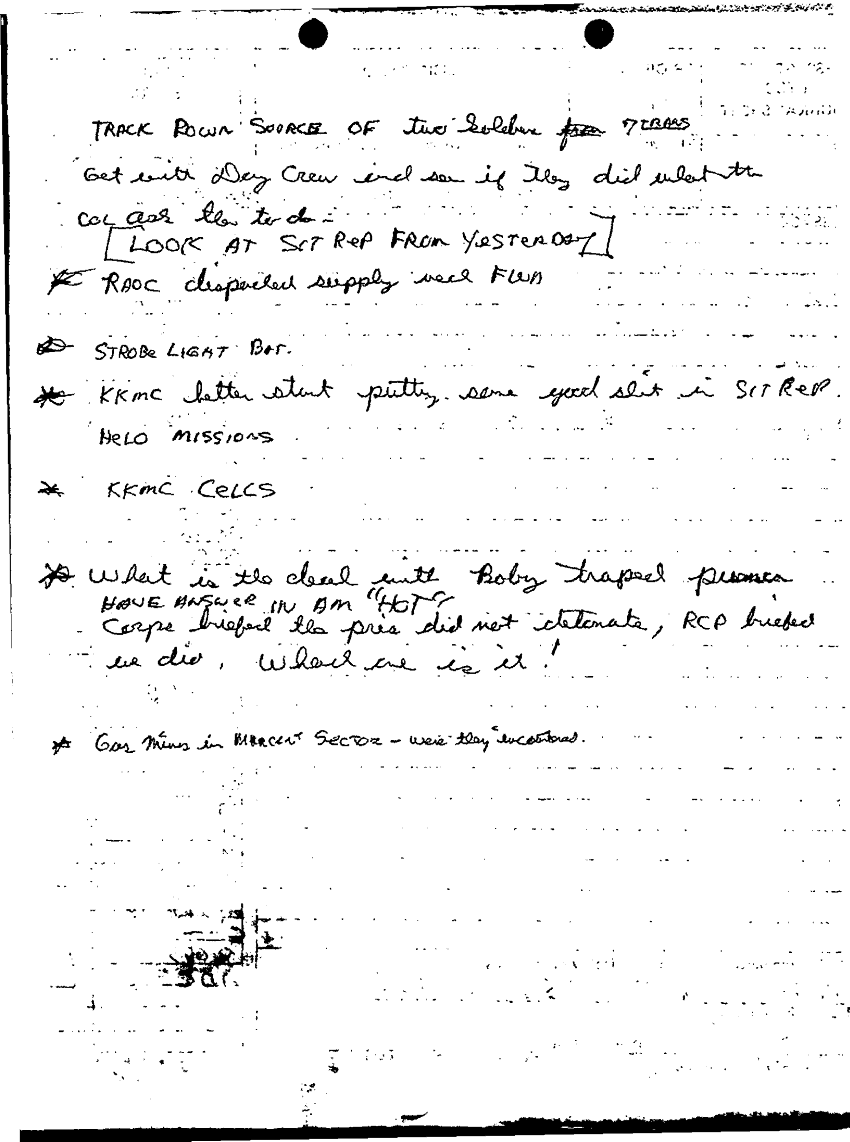 TRACK DOWN SOURCE OF two Soldiers from 7TRANS
Get with Day Crew and see if they did what the
COL ask them to do -
[LOOK AT SITREP FROM YESTERDAY]
* RAOC dispatched supply FWD
STROBE LIGHT BAT.
* KKMC better start putting some good shit in SITREP.
HELO MISSIONS
* KKMC CELLS
* What is the deal with Boby traped prisoner
HAVE ANSWER IN AM "HOT"
Corps briefed the pris did not detonate, RCP briefed
we did, Which one is it!
* Gas Mines in Sector - were they encountered.